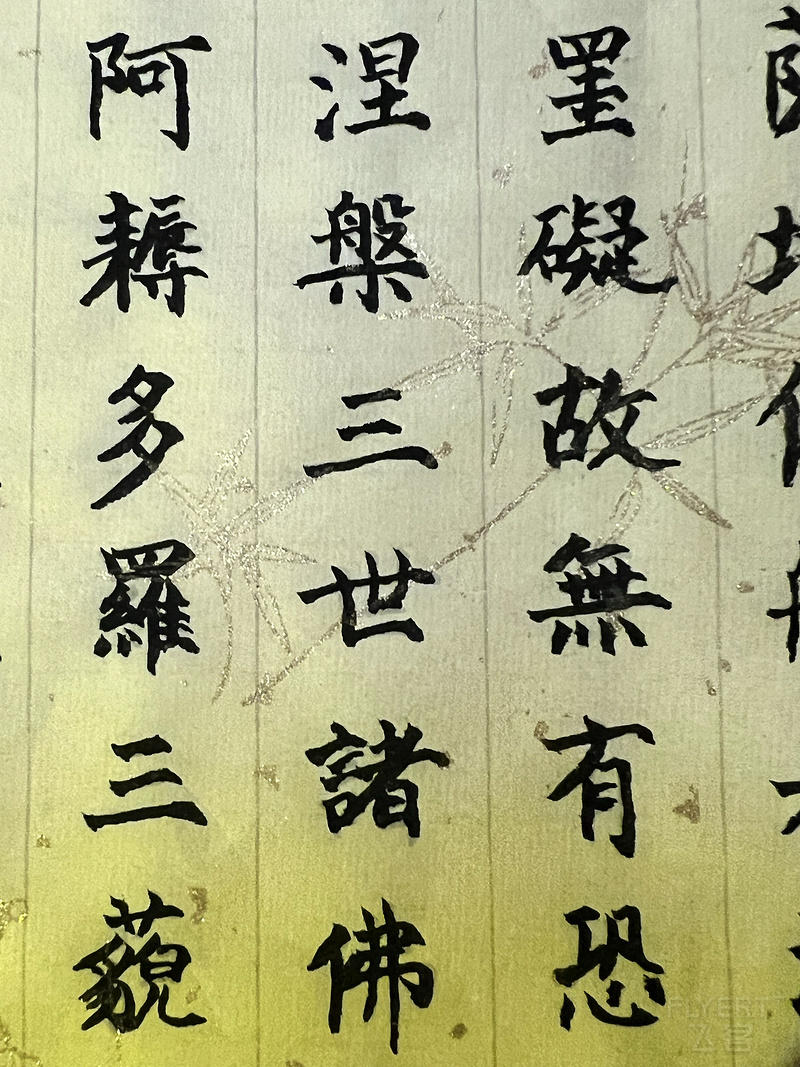 罣礙故無有恐
涅槃三世諸佛
阿耨多羅三藐
FLYERT